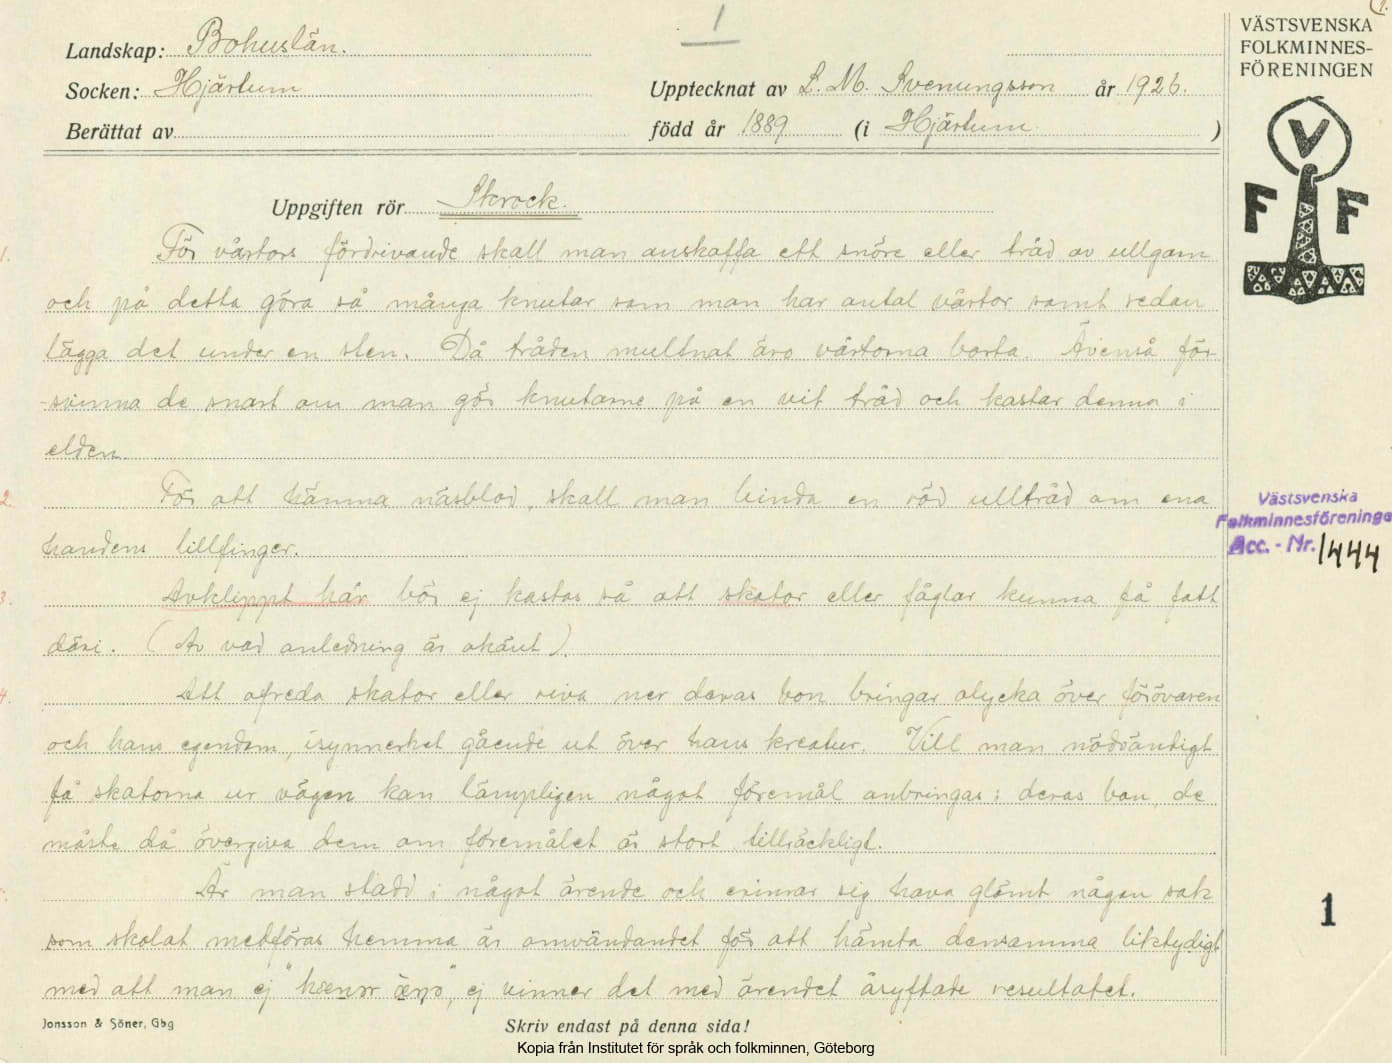 1
1.
Landskap: Bohuslän.
Socken: Hjärtum
Upptecknat av L. M. Svenungsson år 1926.
Berättat av
född år 1889 (i Hjärtum )
VÄSTSVENSKA
FOLKMINNES-
FÖRENINGEN
V
F F
Uppgiften rör Skrock.
1. För vårtors fördrivande skall man anskaffa ett snöre eller tråd av ullgarn
och på detta göra så många knutar som man har antal vårtor samt sedan
lägga det under en sten. Då tråden multnat äro vårtorna borta. Ävenså för-
svinna de snart om man gör knutarne på en vit tråd och kastar denna i
elden.
2. För att hämma näsblod, skall man binda en röd ulltråd om ena
handens lillfinger.
3. Avklippt hår bör ej kastas så att skator eller fåglar kunna få fatt
däri. (Av vad anledning är okänt).
4. Att ofreda skator eller riva ner deras bon bringar olycka över förövaren
och hans egendom, isynnerhet gående ut över hans kreatur. Vill man nödvändigt
få skatorna ur vägen kan lämpligen något föremål anbringas i deras bon, de
måste då övergiva dem om föremålet är stort tillräckligt.
Är man stadd i något ärende och erinrar sig hava glömt någon sak
som skolat medföras hemma är omvändandet för att hämta densamma liktydigt
med att man ej ej vinner det med ärendet åsyftade resultatet.
Västsvenska
Folkminnesföreninge
Acc. - Nr. 1444
1
Jonsson & Söner, Gbg
Skriv endast på denna sida!
Kopia från Institutet för språk och folkminnen, Göteborg